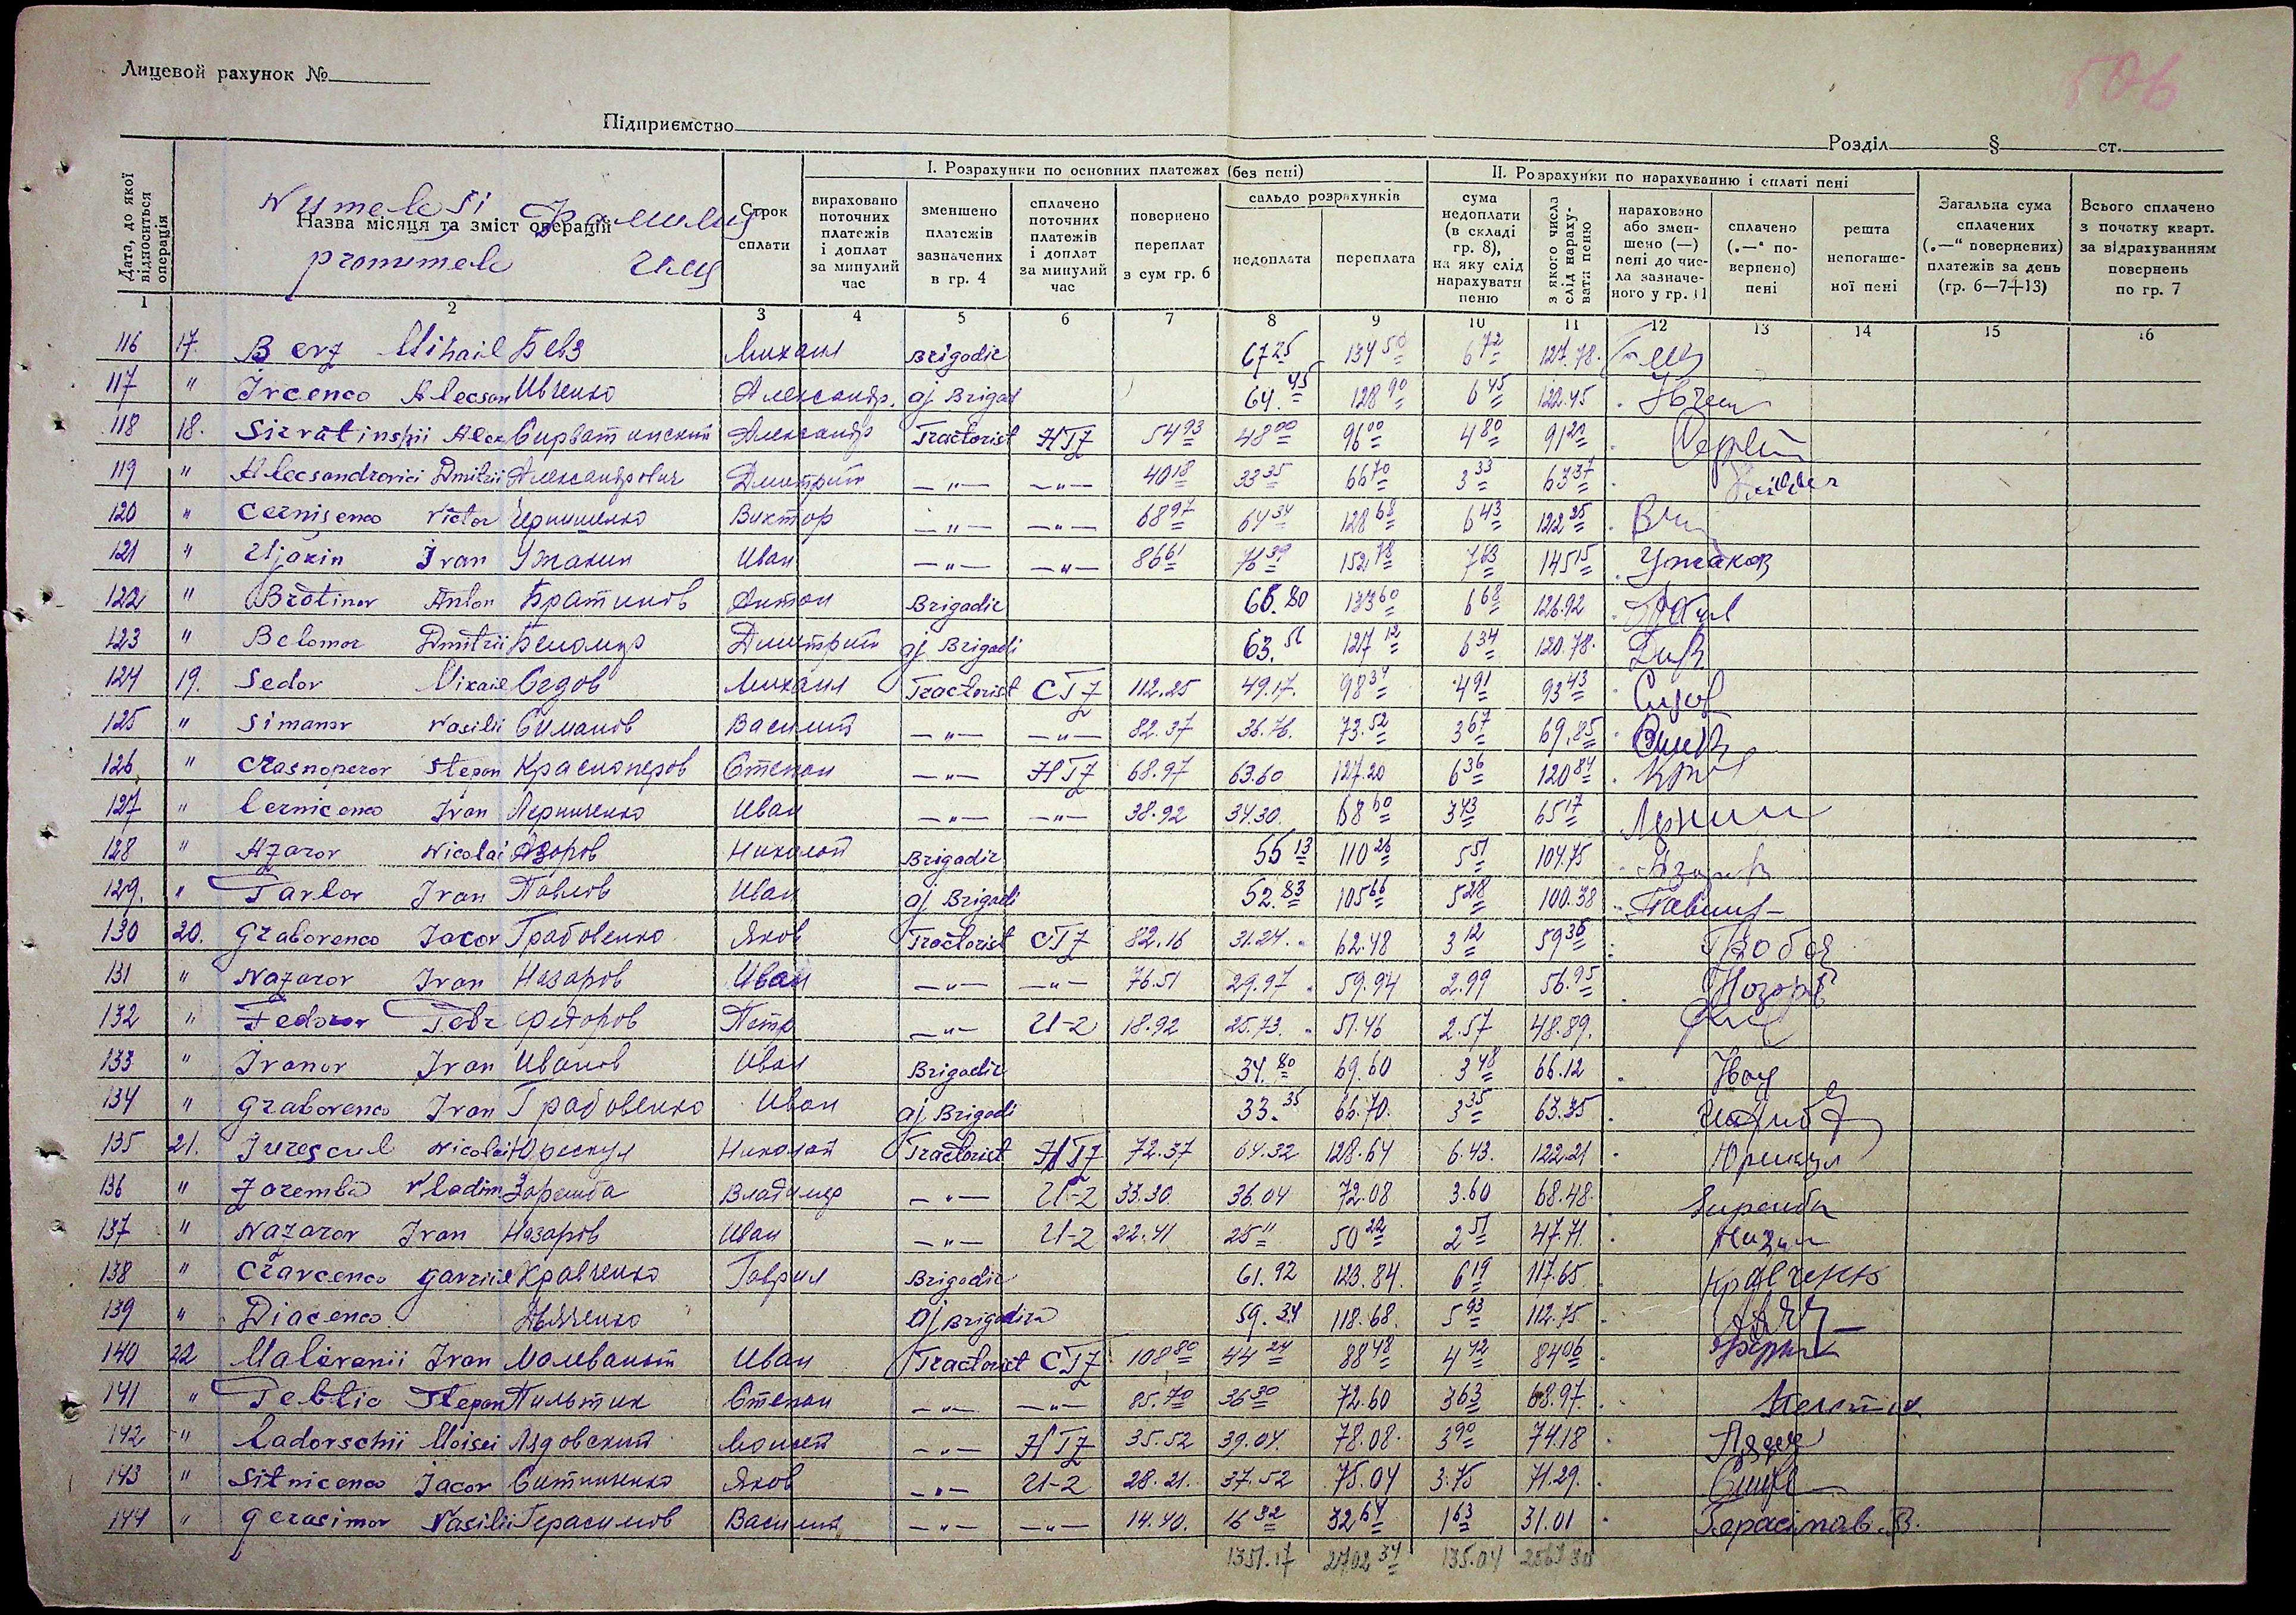 Лицевой рахунок №
506
Підприємство
Розділ § ст.
Дата, до якої відноситься операція
Numele și Фамилия
Назва місяця та зміст операцій
pronumele
Строк сплати
I. Розрахунки по основних платежах (без пені)
вираховано поточних платежів і доплат за минулий час
зменшено платежів зазначених в гр. 4
сплачено поточних платежів і доплат за минулий час
повернено переплат з сум гр. 6
сальдо розрахунків
недоплата переплата
II. Розрахунки по нарахуванню і сплаті пені
сума недоплати (в складі гр. 8), на яку слід нарахувати пеню
з якого числа слід нарахувати пеню
нараховано або зменшено (—) пені до числа зазначеного у гр. 11
сплачено („—“ повернено) пені
решта непогашеної пені
Загальна сума сплачених („—“ повернених) платежів за день (гр. 6—7+13)
Всього сплачено з початку кварт. за відрахуванням повернень по гр. 7
1 2 3 4 5 6 7 8 9 10 11 12 13 14 15 16
116 17. Bevz Mihail Бевз Михаил Brigadir 67 25 134 50 6 72 127.78.
117 " Ivcenco Alecsan Ивченко Александр. aj Brigad 64. 45 128 90 6 45 122.45
118 18. Sirvatinskii Alex Сирватинский Александр Tractorist НТZ 54 93 48 00 96 00 4 80 91 20
119 " Alecsandrovici Dmitrii Александрович Дмитрий —"— —"— 40 18 33 35 66 70 3 33 63 37
120 " Cernisenco Victor Чернишенко Виктор —"— —"— 68 97 64 34 128 68 6 43 122 25
121 " Ujakin Ivan Ужакин Иван —"— —"— 86 61 76 39 152 78 7 63 145 15 Ужаков
122 " Bratinov Anton Братинов Антон Brigadir 66.80 133 60 6 68 126.92
123 " Belomor Dmitrii Беломор Дмитрий aj Brigadi 63. 56 127 12 6 34 120.78.
124 19. Sedov Mihail Седов Михаил Tractorist СТZ 112.25 49.17. 98 34 4 91 93 43
125 " Simanov Vasilii Симанов Василий —"— —"— 82.37 36.76. 73. 52 3 67 69,85
126 " Crasnoperov Stepan Красноперов Степан —"— НТZ 68.97 63.60 127.20 6 36 120 84
127 " Lernicenco Ivan Лерниченко Иван —"— —"— 38.92 34.30. 68 60 3 43 65 17
128 " Azarov Nicolai Азаров Николай Brigadir 55 13 110 26 5 51 104.75
129. " Pavlov Ivan Павлов Иван aj Brigadi 52. 83 105 66 5 28 100.38
130 20. Grabovenco Iacov Грабовенко Яков Tractorist СТZ 82.16 31.24. 62.48 3 12 59 36
131 " Nazarov Ivan Назаров Иван —"— —"— 76.51 29.97 59.94 2.99 56.95
132 " Fedorov Petr Федоров Петр —"— U-2 18.92 25.73. 51.46 2.57 48.89.
133 " Ivanov Ivan Иванов Иван Brigadir 34. 80 69.60 3 48 66.12
134 " Grabovenco Ivan Грабовенко Иван aj Brigadi 33. 35 66.70. 3 35 63.35
135 21. Iurescul Nicolai Юрескул Николай Tractorist НТZ 72.37 64.32 128.64 6.43. 122.21 Юрискул
136 " Zaremba Vladim Заремба Владимир —"— U-2 33.30. 36.04 72.08 3.60 68.48. Заремба
137 " Nazarov Ivan Назаров Иван —"— U-2 22.41 25 11 50 22 2 51 47.71.
138 " Cravcenco Gavriil Кравченко Гаврил Brigadir 61.92 123.84. 6 19 117.65 Кравченко
139 " Diacenco Дьяченко aj Brigadira 59.34 118.68. 5 93 112.75
140 22 Malevanii Ivan Малеваный Иван Tractorist СТZ 108 80 44 24 88 48 4 42 84 06
141 " Peltic Stepan Пильтик Степан —"— —"— 85.70 36 30 72.60 3 63 68.97.
142 " Ladovschii Moisei Лядовский Моисей —"— НТZ 35.52 39.04. 78.08. 3 90 74.18
143 " Sitnicenco Iacov Ситниченко Яков —"— U-2 28.21. 37.52 75.04 3.75 71.29.
144 " Gerasimov Vasilii Герасимов Василий —"— —"— 14.40. 16 32 32 64 1 63 31.01 Герасимов. В.
1351.17 2702 34 135.04 2567 30